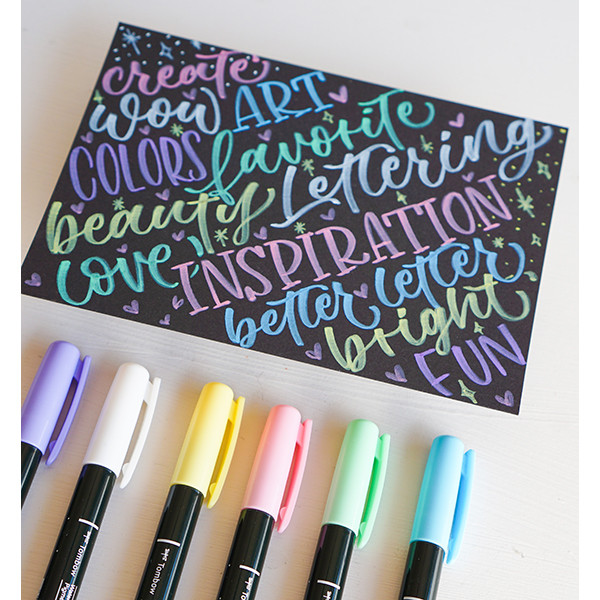 create
wow ART
COLORS favorite
beauty Lettering
love, INSPIRATION
better letter
bright
FUN
Tombow
Tombow
Tombow
Tombow